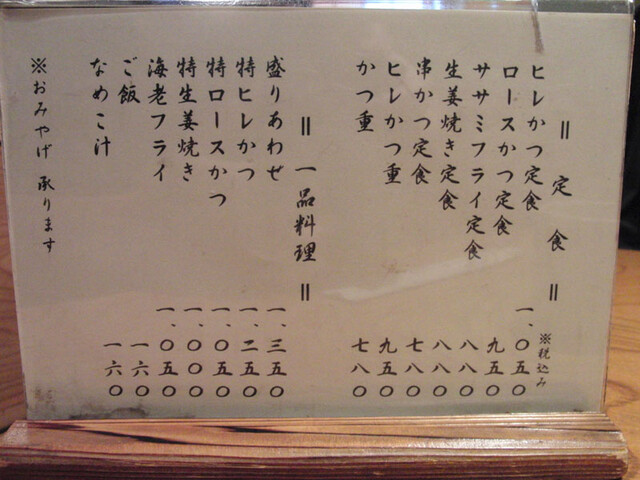 ＝ 定食 ＝
※税込み
ヒレかつ定食 一、〇五〇
ロースかつ定食 九五〇
ササミフライ定食 八八〇
生姜焼き定食 八八〇
串かつ定食 七八〇
ヒレかつ重 九五〇
かつ重 七八〇
＝ 一品料理 ＝
盛りあわせ 一、三五〇
特ヒレかつ 一、二五〇
特ロースかつ 一、〇五〇
特生姜焼き 一、〇〇〇
海老フライ 一、〇五〇
ご飯 一六〇
なめこ汁 一六〇
※おみやげ 承ります